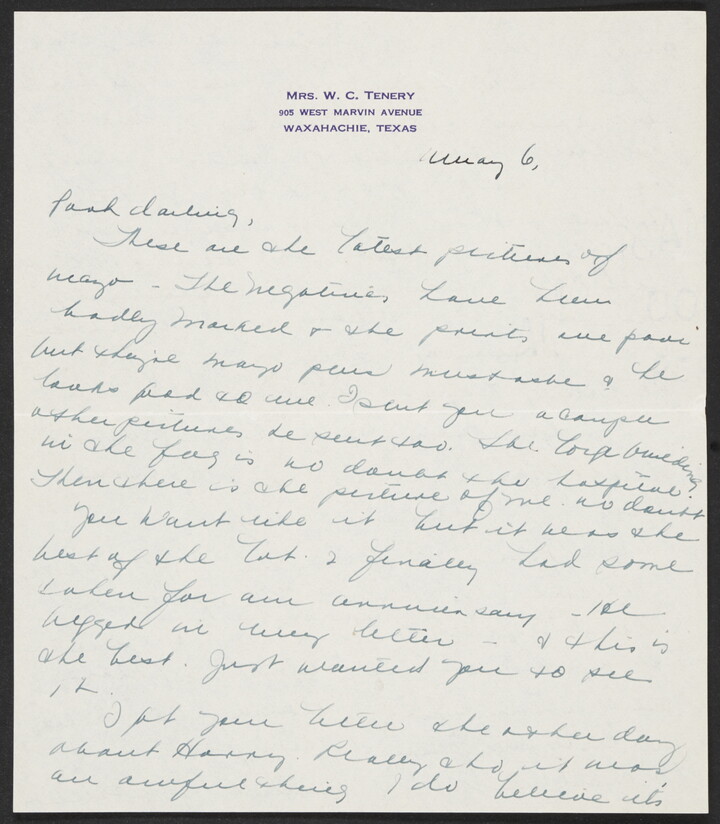 MRS. W. C. TENERY
905 WEST MARVIN AVENUE
WAXAHACHIE, TEXAS
May 6,
darling,
These are the latest pictures of
Mayo - The negatives have been
badly marked & the prints are poor
but they're Mayo plus mustache & he
looks good to me. I sent you a couple
other pictures he sent too. The large building
in the fog is no doubt the hospital.
Then there is the picture of me. No doubt
you wont like it but it was the
best of the lot. I finally had some
taken for our anniversary - He
begged in every letter - & this is
the best. Just wanted you to see
it.
I got your letter the other day
about Harry. Really tho, it was
an awful thing I do believe it's